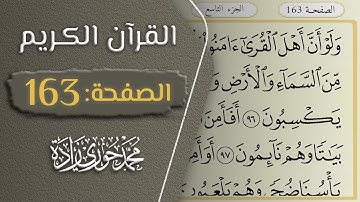 القرآن الكريم
الصفحة: 163
محمد حوري زادة
الصفحة 163
الجزء التاسع
وَلَوْ أَنَّ أَهْلَ الْقُرَىٰ ءَامَنُو
مِّنَ السَّمَاءِ وَالْأَرْضِ و
يَكْسِبُونَ ٩٦ أَفَأَمِنَ
بَيَٰتًا وَهُمْ نَائِمُونَ ٩٧ أَوَأَمِ
بَأْسُنَا ضُحًى وَهُمْ يَلْعَبُون